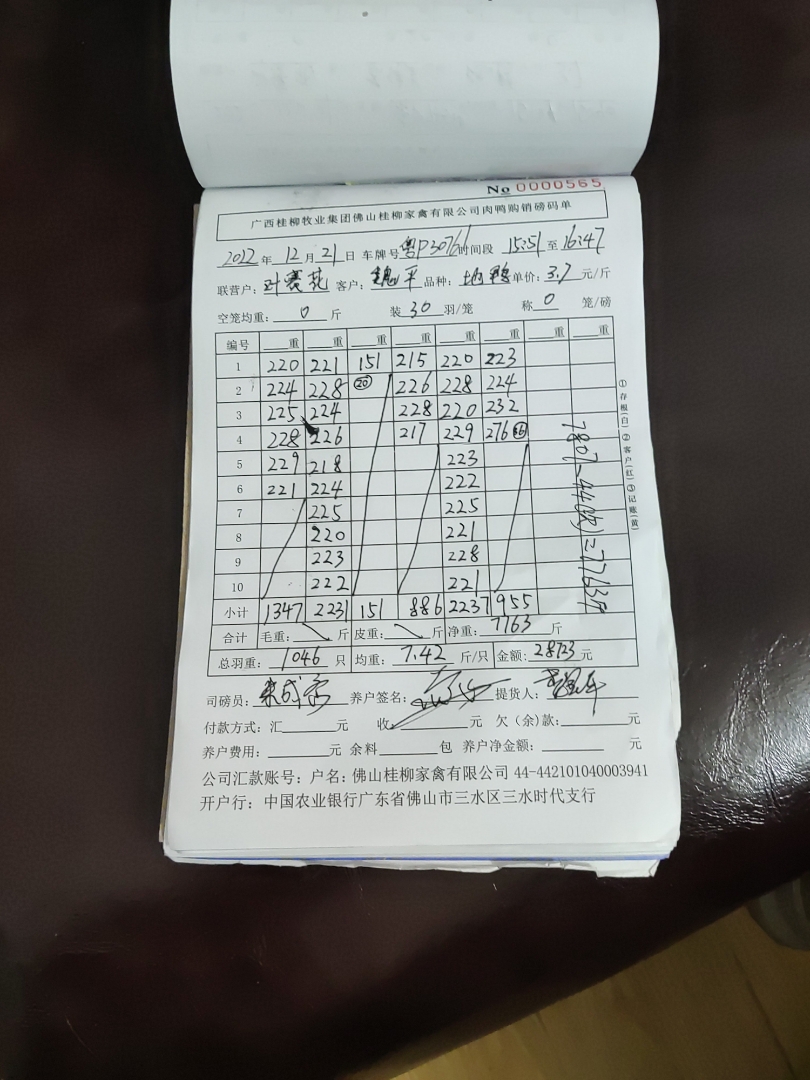 No 0000565
广西桂柳牧业集团佛山桂柳家禽有限公司肉鸭购销磅码单
2022年 12月21日 车牌号粤P3076 时间段 15:51至16:47
联营户：叶赛花 客户：魏平 品种： 单价：3.7元/斤
空笼均重：0斤 装30羽/笼 称0笼/磅
编号 重 重 重 重 重 重 重 重
1 220 221 151 215 220 223
2 224 228 ⑳ 226 228 224
3 225 224 228 220 232
4 228 226 217 229 276 ⑯
5 229 218 223
6 221 224 222
7 225 225
8 220 221
9 223 228
10 222 221
小计 1347 2231 151 886 2237 955
合计 毛重： 斤 皮重： 斤 净重：7763斤
总羽重：1046只 均重：7.42斤/只 金额：28723元
司磅员： 养户签名： 提货人：
付款方式：汇 元 收 元 欠（余）款： 元
养户费用： 元 余料 包 养户净金额： 元
公司汇款账号：户名：佛山桂柳家禽有限公司 44-442101040003941
开户行：中国农业银行广东省佛山市三水区三水时代支行
7807-44 =7763斤
①存根(白)②客户(红)③记账(黄)